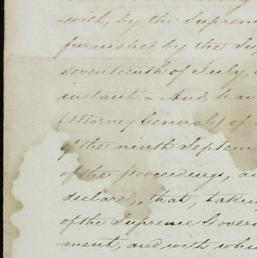 with, by the Suprem
furnished by the Su
seventeenth of July,
instant. And, hav
Attorney General) of
of the ninth Septem
of the proceedings, an
declared, that, taking
of the Supreme Gover
ment, and with whic